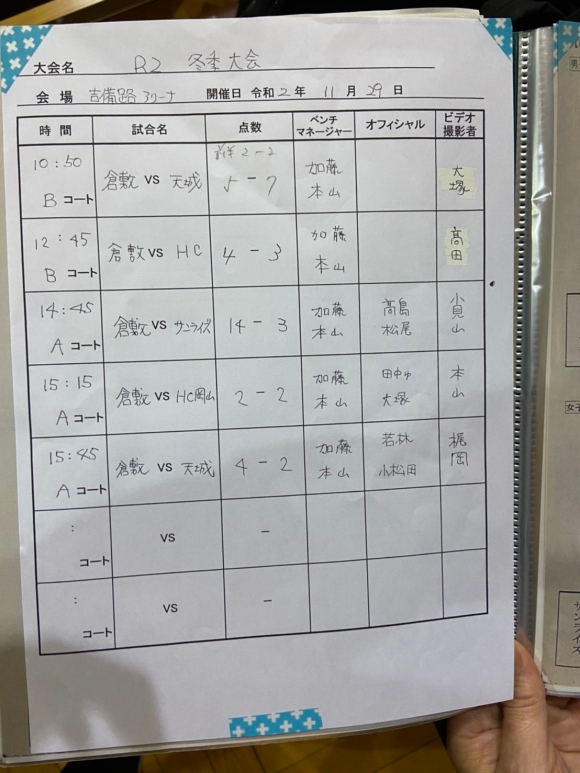 大会名 R2 冬季大会
会場 吉備路アリーナ 開催日 令和2年 11月29日
時間 試合名 点数 ベンチマネージャー オフィシャル ビデオ撮影者
10:50 Bコート 倉敷 VS 天城 前半2-2 5-7 加藤 本山 大塚
12:45 Bコート 倉敷 VS HC 4-3 加藤 本山 高田
14:45 Aコート 倉敷 VS サンライズ 14-3 加藤 本山 高島 松尾 小見山
15:15 Aコート 倉敷 VS HC岡山 2-2 加藤 本山 田中 大塚 本山
15:45 Aコート 倉敷 VS 天城 4-2 加藤 本山 若林 小松田 梶岡
: コート VS -
: コート VS -
サンライズ